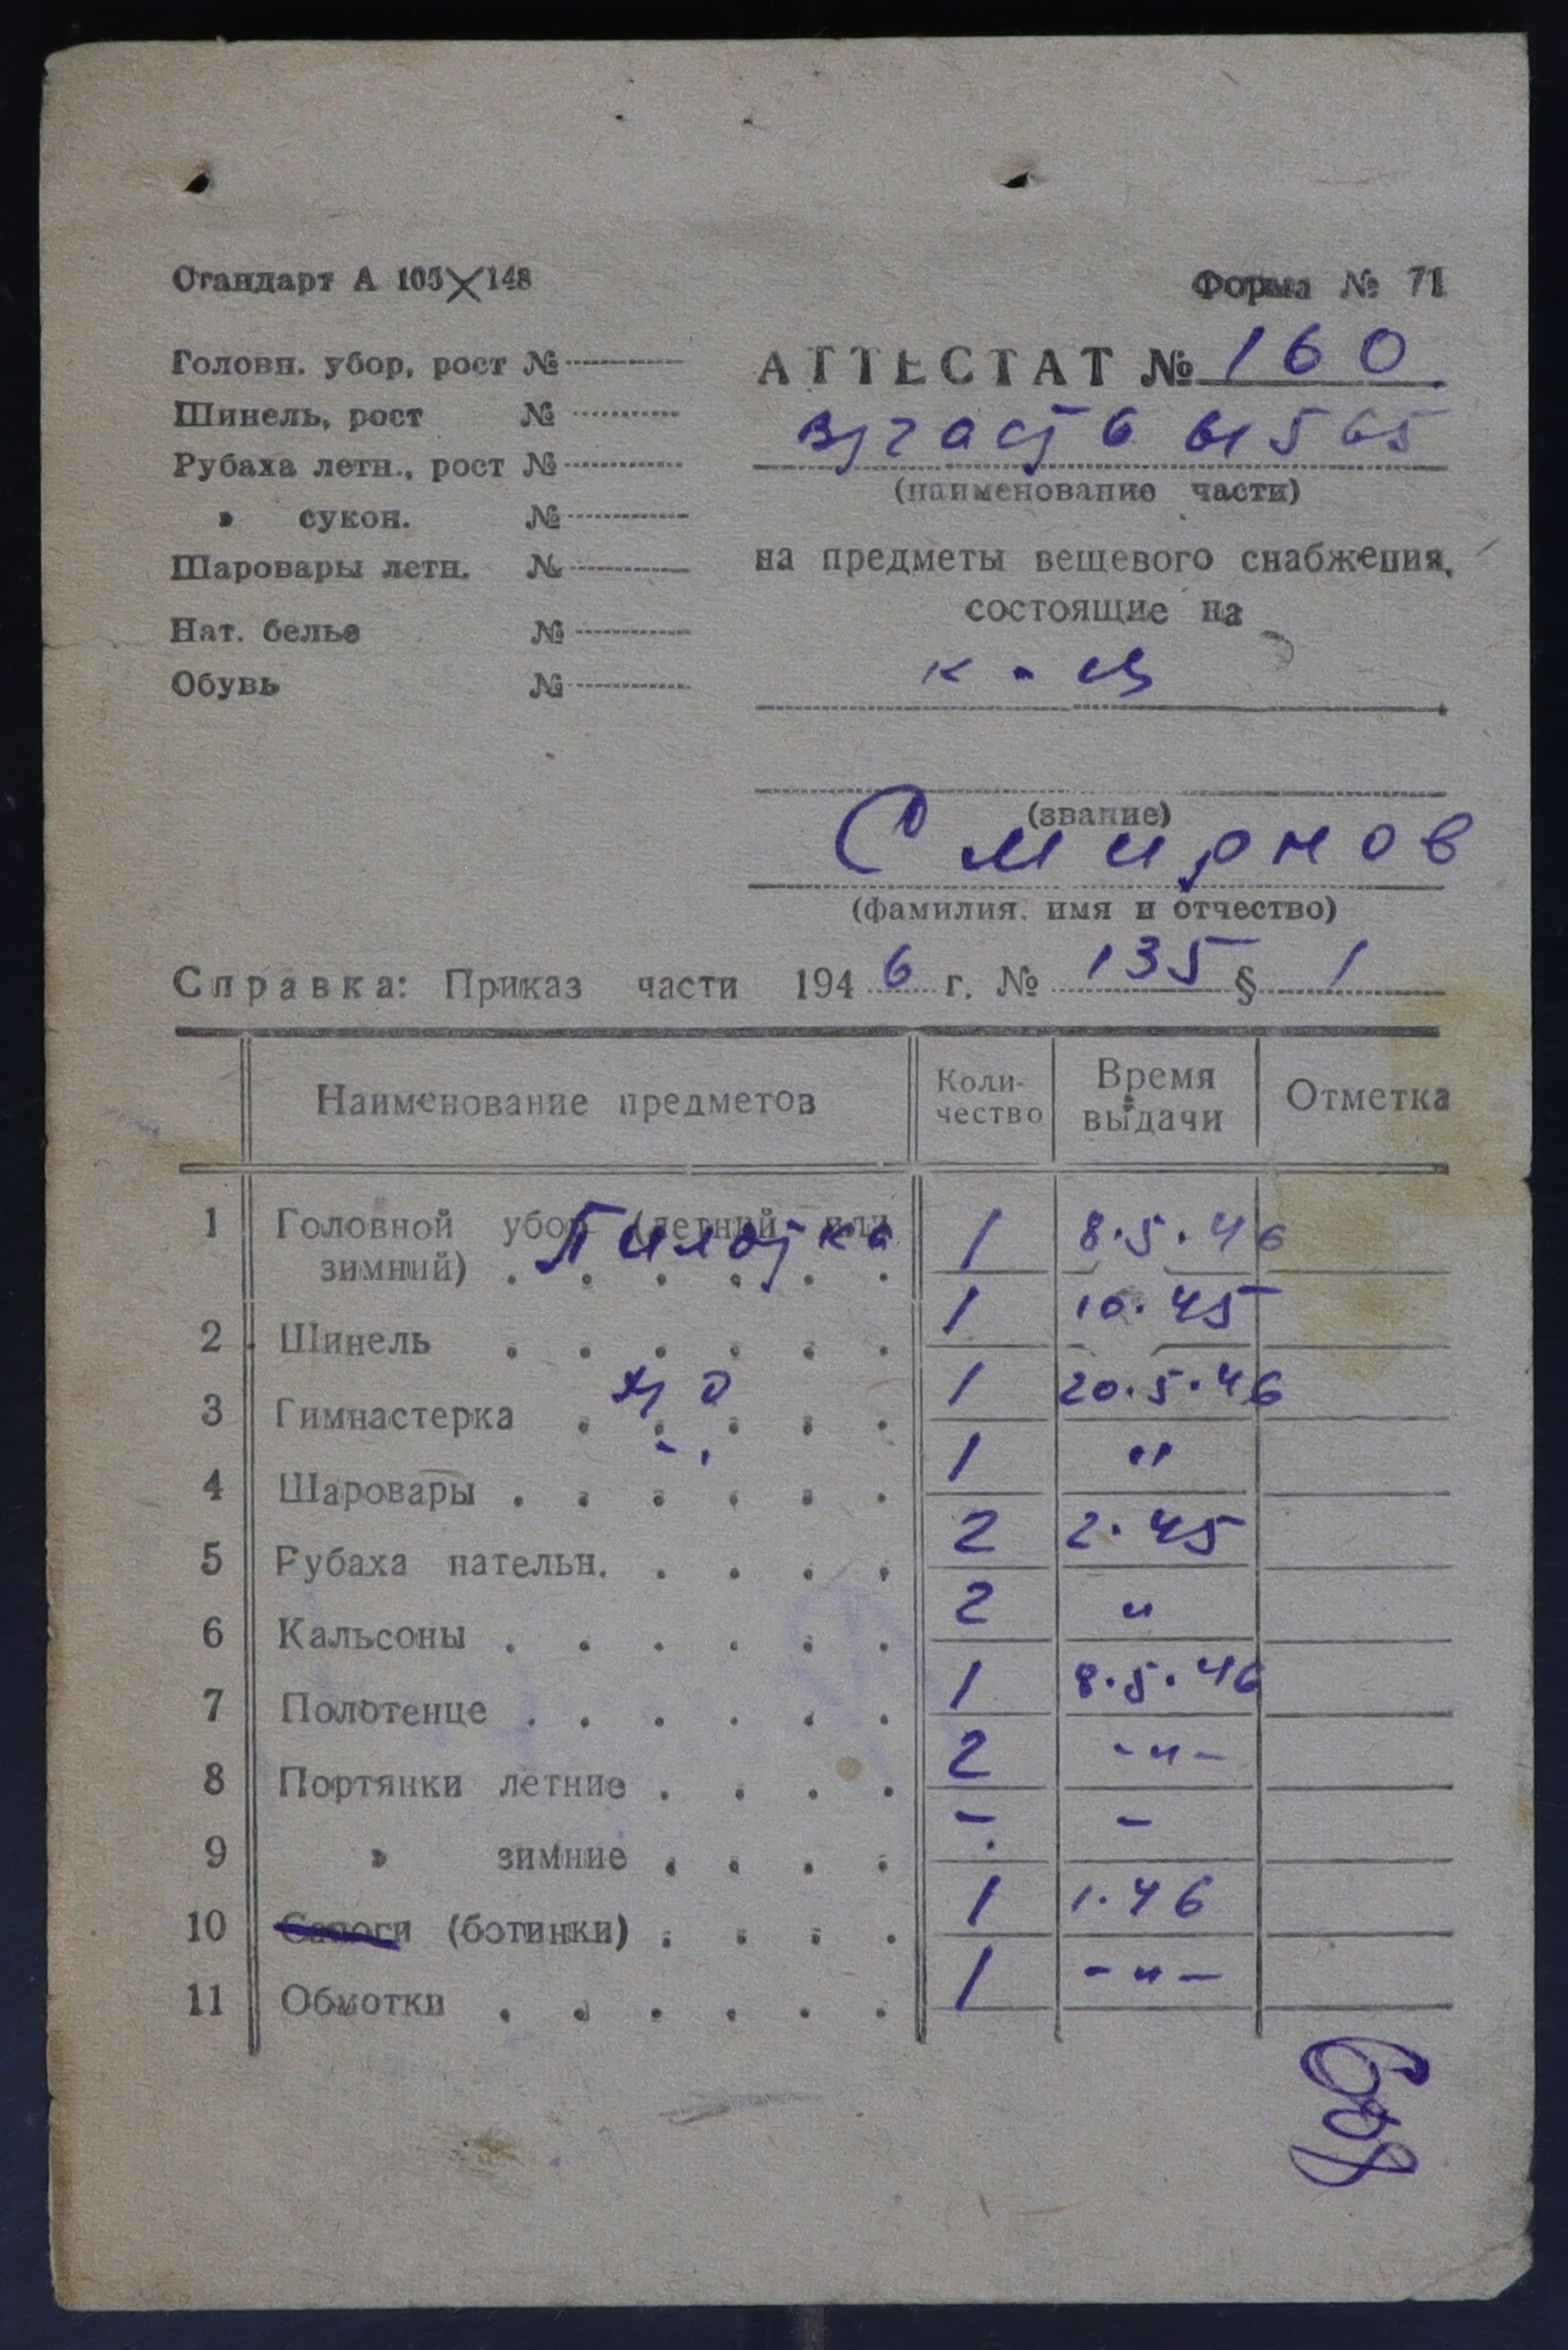 Стандарт А 105×148
Форма № 71
Головн. убор, рост №
Шинель, рост №
Рубаха летн., рост №
» сукон. №
Шаровары летн. №
Нат. белье №
Обувь №
АТТЕСТАТ № 160
(наименование части)
на предметы вещевого снабжения,
состоящие на
(звание)
Смирнов
(фамилия, имя и отчество)
Справка: Приказ части 1946 г. № 135 § 1
Наименование предметов Коли-чество Время выдачи Отметка
1 Головной убор (летний или Пилотка
зимний) 1 8.5.46
2 Шинель 1 10.45
3 Гимнастерка 1 20.5.46
4 Шаровары 1 "
5 Рубаха нательн. 2 2.45
6 Кальсоны 2 "
7 Полотенце 1 8.5.46
8 Портянки летние 2 -"-
9 » зимние - -
10 Сапоги (ботинки) 1 1.46
11 Обмотки 1 -"-